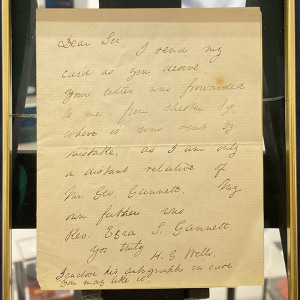 Dear Sir
I send my
card as you desire
Your letter was forwarded
to me from Chester Sq
where it was sent by
mistake. as I am only
a distant relative of
Mr. Geo Gannett. My
own father was
Rev. Ezra S. Gannett.
Yrs truly
H. G. Wells.
I enclose his autographs in case
you may like it.